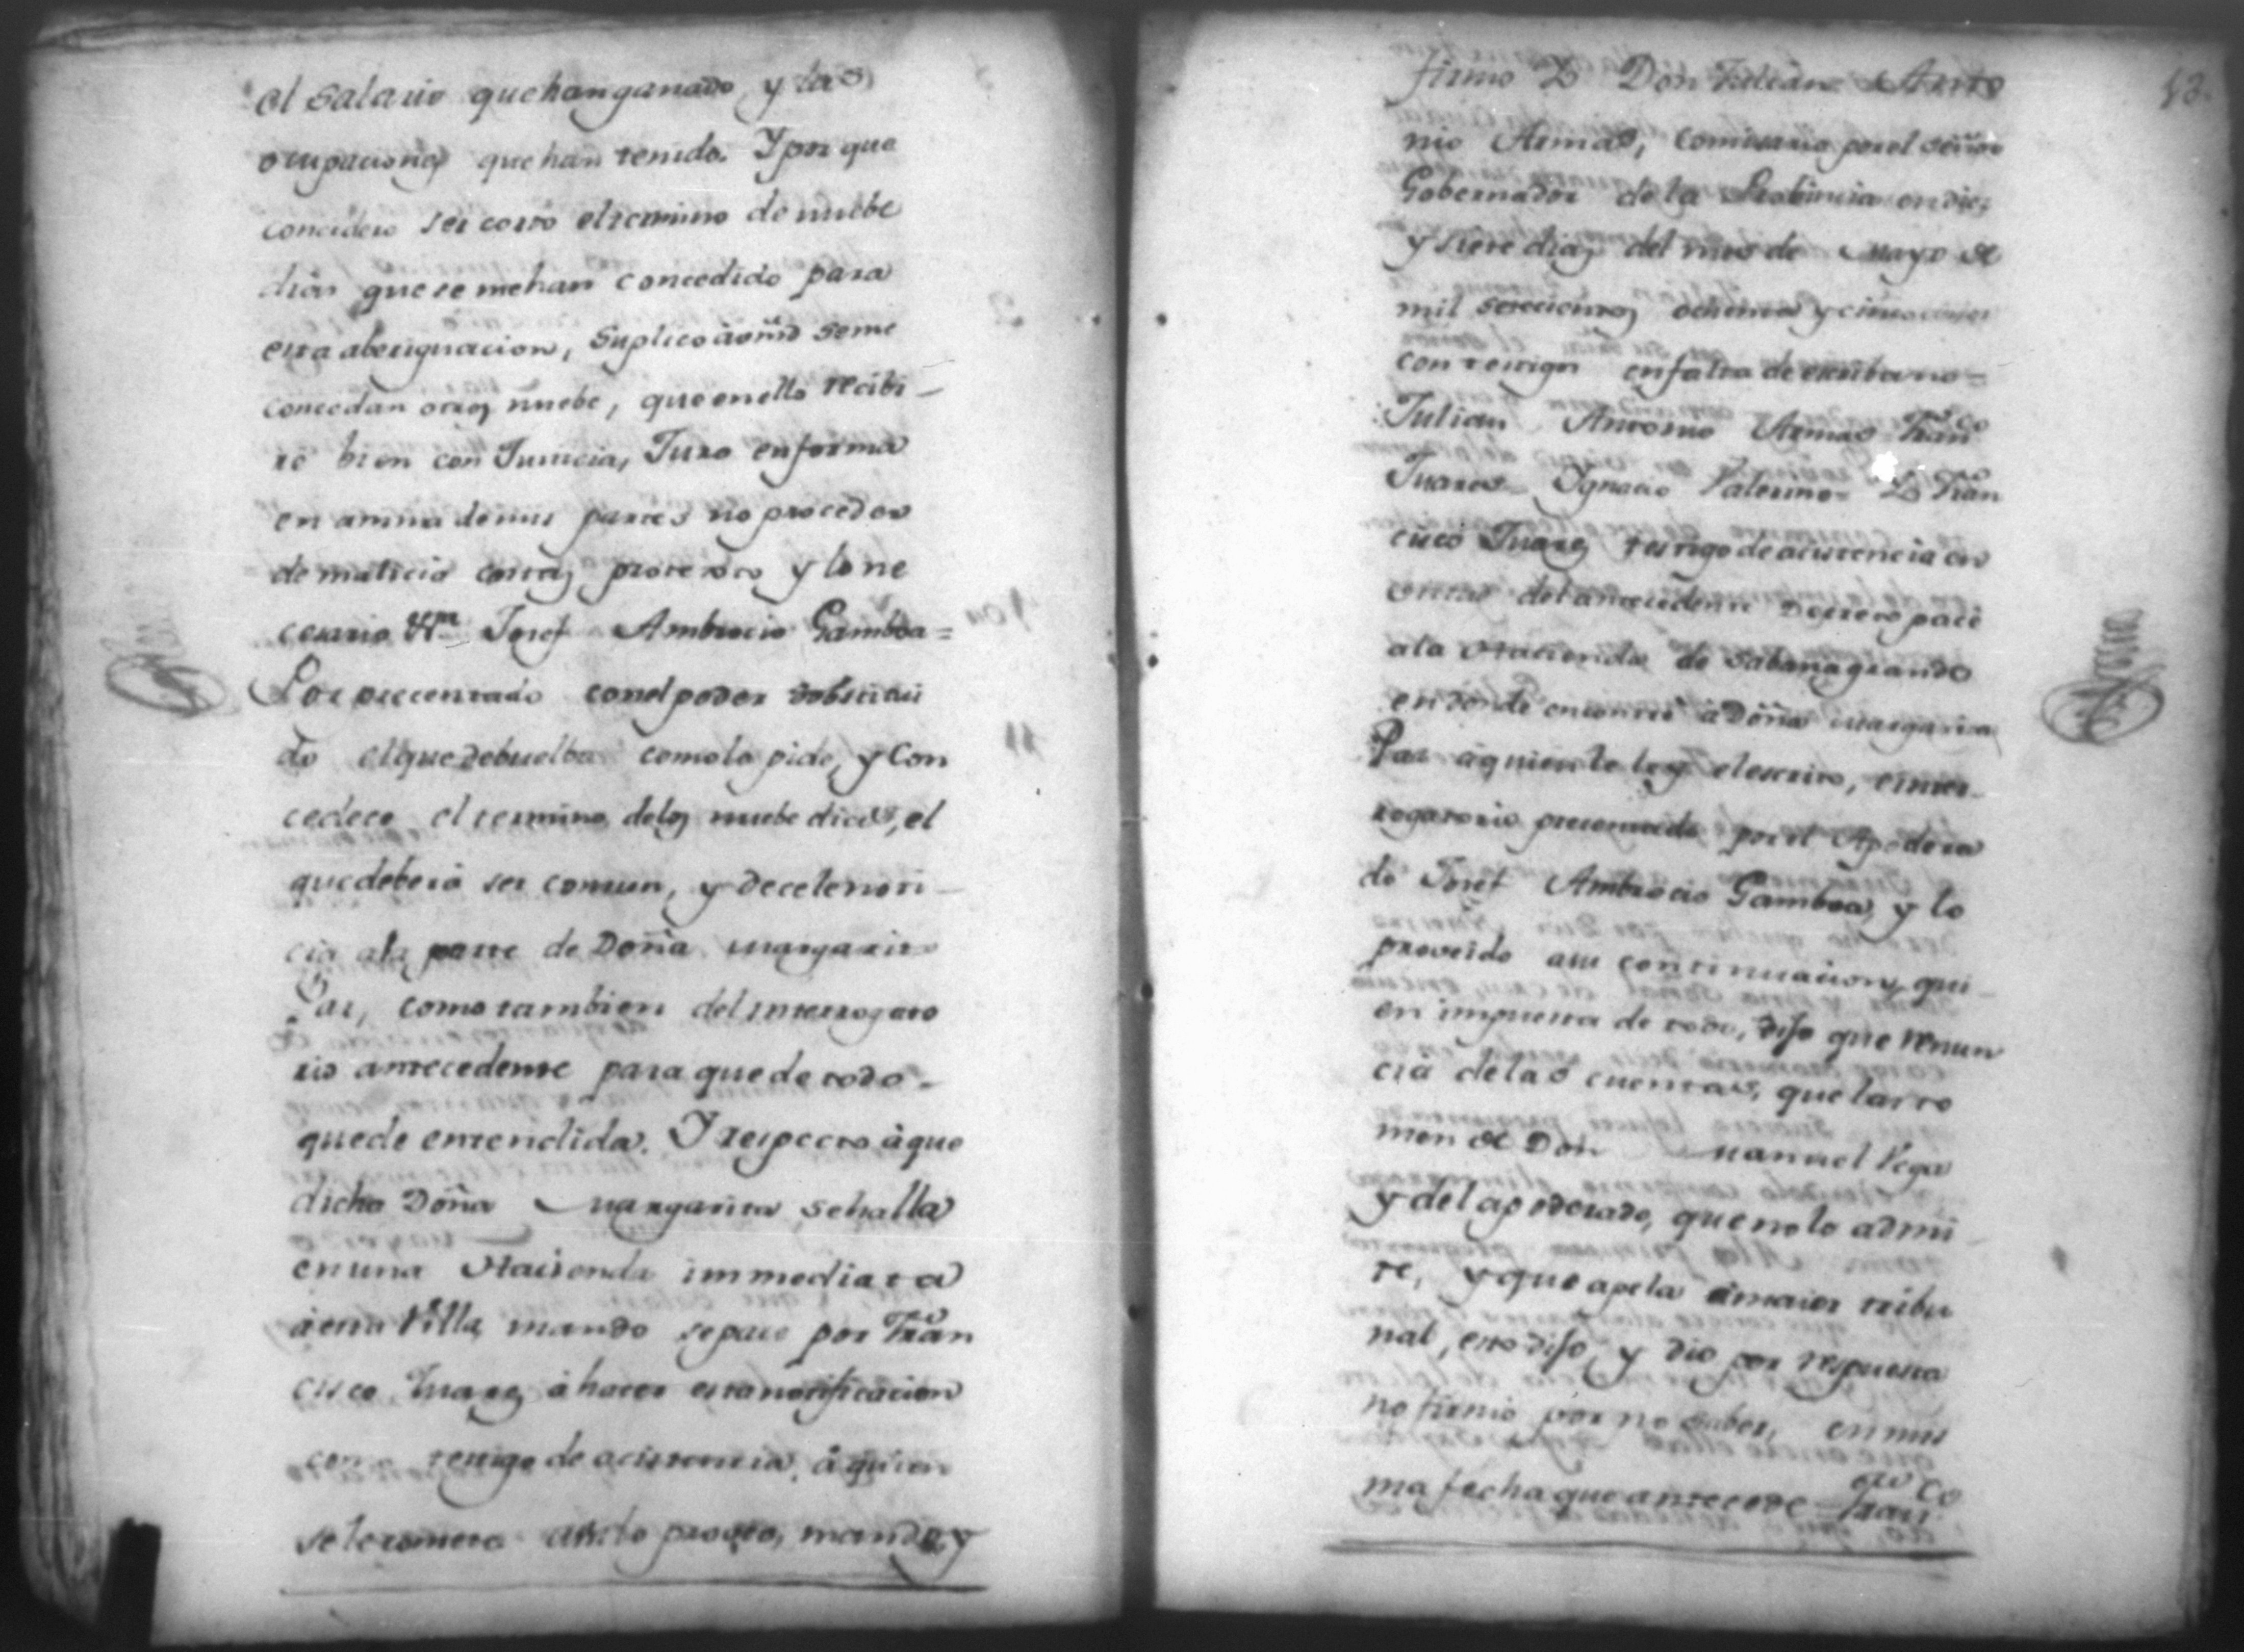 el salario que han ganado, y las
ocupaciones que han tenido. Y por que
concidero ser corto el termino de nuebe
dias que se me han concedido para
esta aberiguacion, Suplico à vmd se me
concedan otros nuebe, que en ello recibi-
rè bien con Justicia, Juro en forma
en anima de mis partes no proceder
de malicia costas protexto y lo ne
cesario &ra Josef Ambrocio Gamboa=
Por precentado con el poder sobstitui
do el que debuelba como lo pide, y Con
cedece el termino de los nuebe dias, el
que deberà ser comun, y decele noti-
cia ala parte de Doña Margarita
Paz, como tambien del interrogato
rio antecedente para que de todo-
quede entendida. Y respecto à que
dicha Doña Margarita se halla
en una Hacienda immediata
à esta Villa, mando se pace por Fran
cisco Juarez à hacer esta notificacion
con testigo de acistencia, à quien
se le comete assi lo proveo, mando, y
43.
firmo Yo Don Julian Anto
nio Armas, Comisario por el señor
Gobernador de la Probincia en dies
y siete dias del mes de Mayo de
mil setecientos ochenta y cinco años
con testigos en falta de escribano=
Julian Antonio Armas Franco
Juares= Ygnacio Palermo= Yo Fran
cisco Juarez testigo de acistencia en
virtud del antecedente Decreto pacè
ala Hacienda de Sabanagrande
en donde encontrè à Doña Margarita
Paz à quien le ley el escrito, è inter-
rogatorio precentado por el Apodera
do Josef Ambrocio Gamboa, y lo
proveido a su continuacion, qui-
en impuesta de todo, dijo que renun
cia de las cuentas, que las to
men de Don Manuel Vega
y del apoderado, que no lo admi
te, y que apela à maior tribu
nal, esto dijo, y dio por respuesta
no firmò por no saber, en mis
ma fecha que antecede= Franco